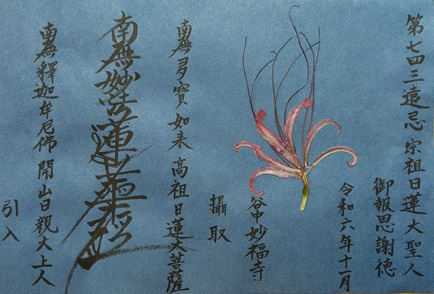 第七四三遠忌 宗祖日蓮大聖人
御報恩謝徳
令和六年十一月
谷中妙福寺
攝取
南無多寳如来 高祖日蓮大菩薩
南無妙法蓮華経
南無釋迦牟尼佛 開山日観大上人
引入